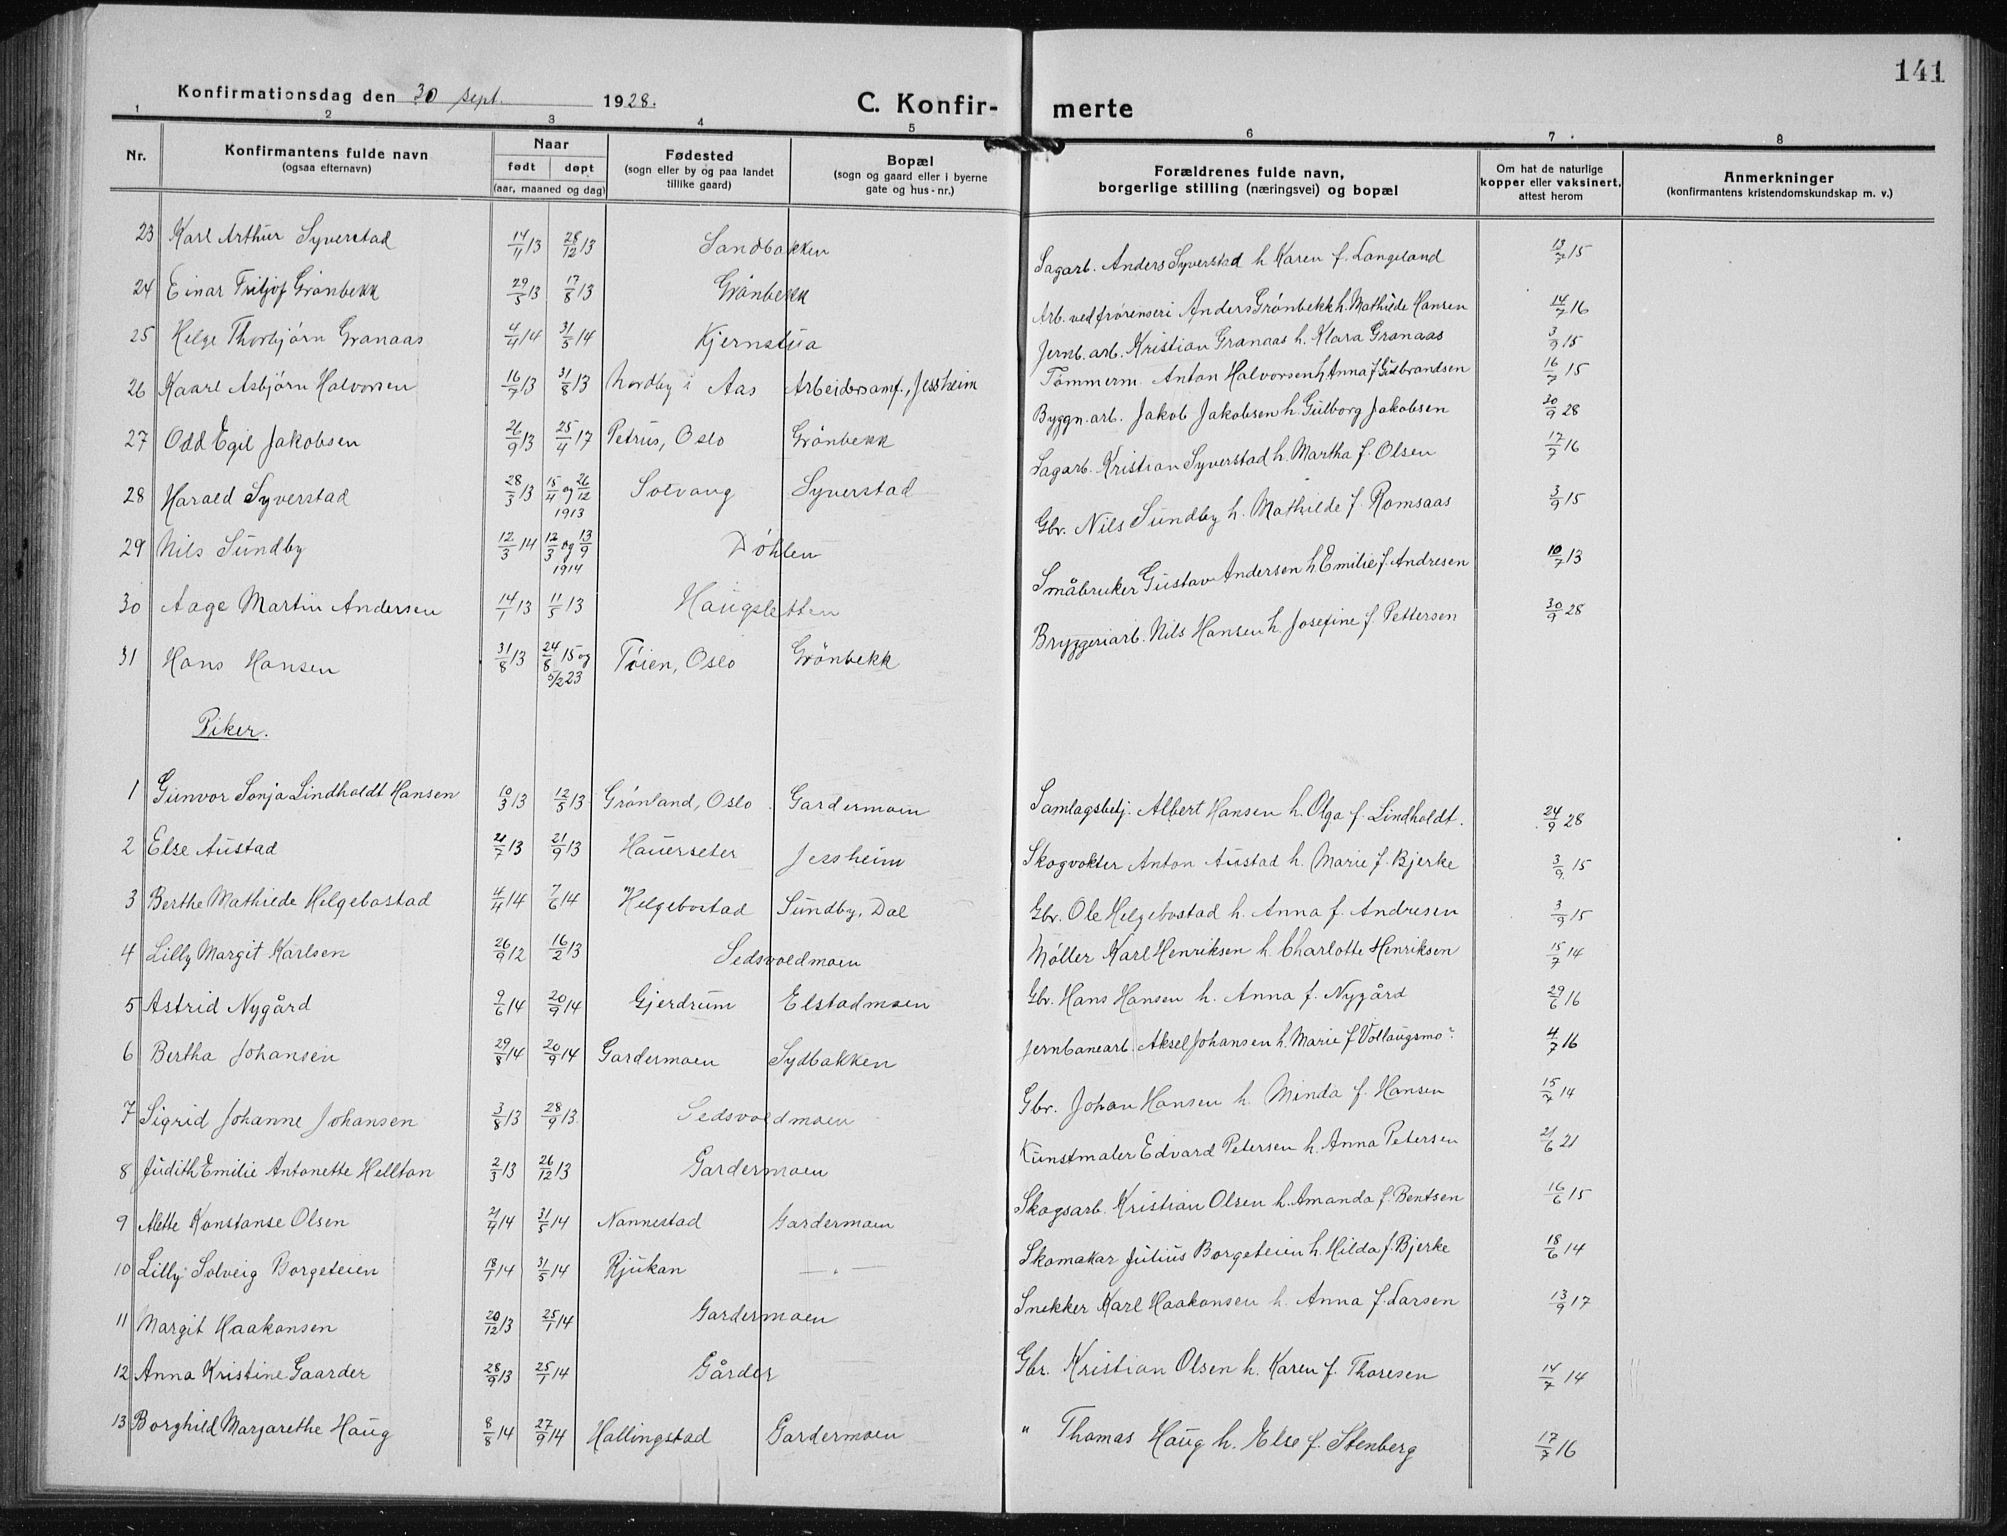 141
Konfirmationsdag den 30 sept. 1928.
C. Konfir- merte
1 2 3 4 5 6 7 8
Nr.
Konfirmantens fulde navn
(ogsaa efternavn)
Naar
født døpt
(aar, maaned og dag)
Fødested
(sogn eller by og paa landet
tillike gaard)
Bopæl
(sogn og gaard eller i byerne
gate og hus-nr.)
Forældrenes fulde navn,
borgerlige stilling (næringsvei) og bopæl
Om hat de naturlige
kopper eller vaksinert,
attest herom
Anmerkninger
(konfirmantens kristendomskundskap m. v.)
23 Karl Arthur Syverstad 14/11 13 28/12 13 Sandbakken Sagarb. Anders Syverstad h Karen f. Langeland 13/7 15
24 Einar Fritjof Grønbekk 29/5 13 17/8 13 Grønbekk Arb. ved Anders Grønbekk h. Mathilde Hansen 14/7 16
25 Helge Thorbjørn Granaas 4/4 14 31/5 14 Kjernstua Jernb. arb. Kristian Granaas h. Klara Granaas 3/9 15
26 Kaare Asbjørn Halvorsen 16/7 13 31/8 13 Nordby i Aas Arbeidersamf., Jessheim Tømmerm. Anton Halvorsen h Anna f Gulbrandsen 16/7 15
27 Odd Egil Jakobsen 26/9 13 25/4 17 Petrus, Oslo Grønbekk Byggn. arb. Jakob Jakobsen h. Gulborg Jakobsen 20/9 28
28 Harald Syverstad 28/3 13 15/4 og 26/12 1913 Solvang Syverstad Sagarb. Kristian Syverstad h. Martha f. Olsen 17/7 16
29 Nils Sundby 12/3 14 12/3 og 13/9 1914 Døhlen Gbr. Nils Sundby h. Mathilde f. Romsaas 3/9 15
30 Aage Martin Andersen 14/1 13 11/5 13 Haugsletten Småbruker Gustav Andersen h Emilie f. Andresen 10/7 13
31 Hans Hansen 31/8 13 24/8 15 og 5/2 23 Tøien, Oslo Grønbekk Bryggeriarb. Nils Hansen h Josefine f. Pettersen 30/9 28
Piker.
1 Gunvor Sonja Lindholdt Hansen 10/3 13 12/5 13 Grønland, Oslo. Gardermoen Samlagsbetj. Albert Hansen h. Olga f. Lindholdt. 24/9 28
2 Else Austad 21/7 13 21/9 13 Hauerseter Jessheim Skogvokter Anton Austad h. Marie f. Bjerke 3/9 15
3 Berthe Mathilde Helgebostad 4/4 14 7/6 14 Helgebostad Sundby, Dal Gbr. Ole Helgebostad h. Anna f. Andresen 3/9 15
4 Lilly Margit Karlsen 26/9 12 16/2 13 Sedsvoldmoen Møller Karl Henriksen h. Charlotte Henriksen 15/7 14
5 Astrid Nygård 9/6 14 20/9 14 Gjerdrum Elstadmoen Gbr. Hans Hansen h. Anna f. Nygård 29/6 16
6 Bertha Johansen 29/8 14 20/9 14 Gardermoen Sydbakken Jernbanearb. Aksel Johansen h. Marie f Vollaugsmo 4/7 16
7 Sigrid Johanne Johansen 3/8 13 28/9 13 Sedsvoldmoen Gbr. Johan Hansen h. Minda f. Hansen 15/7 14
8 Judith Emilie Antonette Hellton 2/3 13 26/12 13 Gardermoen Kunstmaler Edvard Petersen h. Anna Petersen 21/6 21
9 Alette Konstanse Olsen 21/4 14 31/5 14 Nannestad Gardermoen Skogsarb. Kristian Olsen h. Amanda f. Bentsen 16/6 15
10 Lilly Solveig Borgeteien 18/1 14 31/5 14 Rjukan — . — Skomakar Julius Borgeteien h. Hilda f. Bjerke 18/6 14
11 Margit Haakonsen 20/12 13 25/1 14 Gardermoen Snekker Karl Haakonsen h. Anna f. Larsen 13/9 17
12 Anna Kristine Gaarder 28/9 13 25/1 14 Gårder Gbr. Kristian Olsen h. Karen f. Thoresen 14/7 14
13 Borghild Margarethe Haug 8/8 14 27/9 14 Hallingstad Gardermoen " Thomas Haug h. Else f. Stenberg 17/7 16